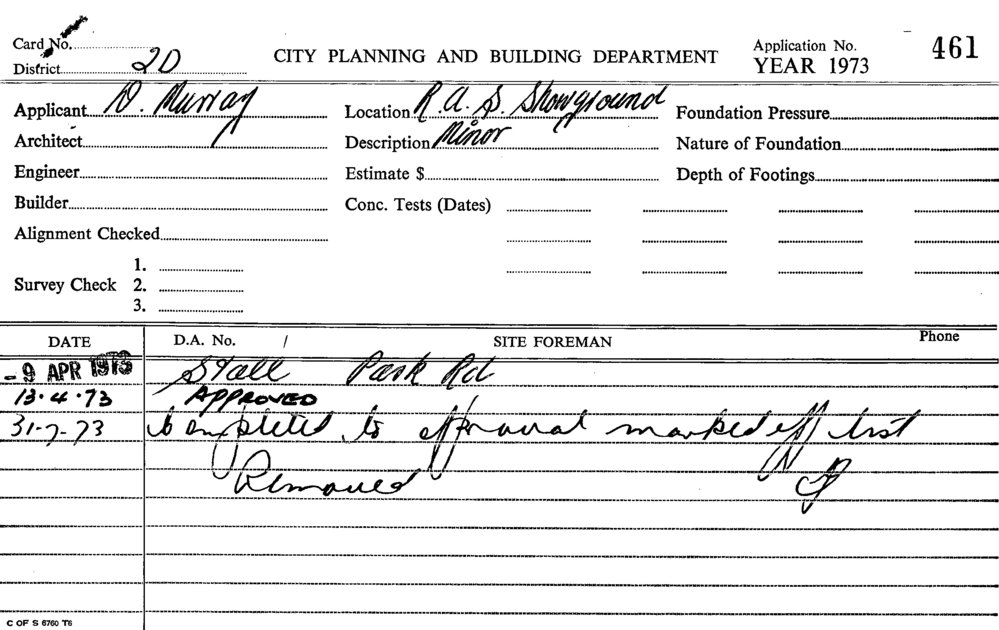 Card No.
CITY PLANNING AND BUILDING DEPARTMENT
Application No. 461
District 2D
YEAR 1973
Applicant D. Murray Location R.A.S. Showground Foundation Pressure
Architect Description Minor Nature of Foundation
Engineer Estimate $ Depth of Footings
Builder Conc. Tests (Dates)
Alignment Checked
1.
Survey Check 2.
3.
DATE D.A. No. / SITE FOREMAN Phone
- 9 APR 1973 Stall Park Rd
13.4.73 APPROVED
31-7-73 Completed to approval marked off list
Removed
C OF S 6760 T6